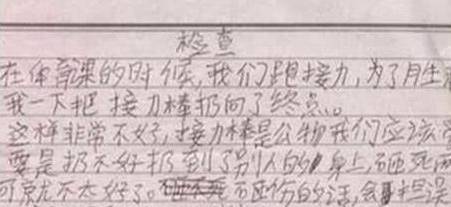 检查
在体育课的时候,我们跑接力,为了月生
我一下把接力棒扔向了终点。
这样非常不好,接力棒是公物我们应该
要是扔不好扔到了别人的身上,砸死
可就不太好了。砸伤的话,会耽误